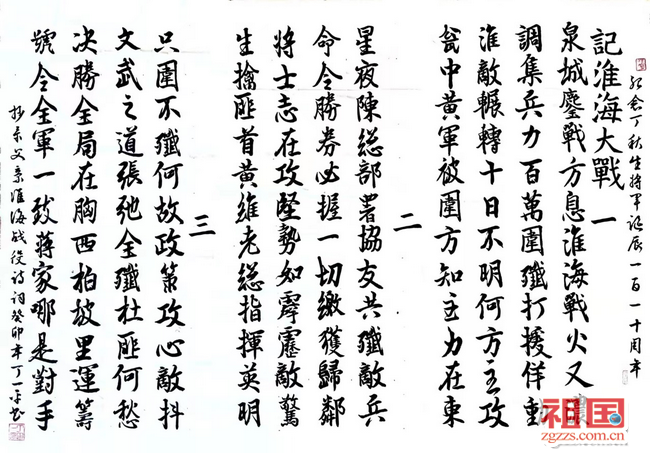 纪念丁秋生将军诞辰一百一十周年
記淮海大戰 一
泉城鏖戰方息淮海戰火又
調集兵力百萬圍殲打援佯重
淮敵輾轉十日不明何方主攻
甕中黃軍被圍方知主力在東
二
星夜陳總部署協友共殲敵兵
命令勝券必握一切繳獲歸鄰
將士志在攻堅勢如霹靂敵驚
生擒匪首黃維老總指揮英明
三
只圍不殲何故政策攻心敵抖
文武之道張弛全殲杜匪何愁
决勝全局在胸西柏坡里運籌
號令全軍一致蔣家哪是對手
抄录父亲淮海战役诗词癸卯年丁一平书
祖国
zgzzs.com.cn